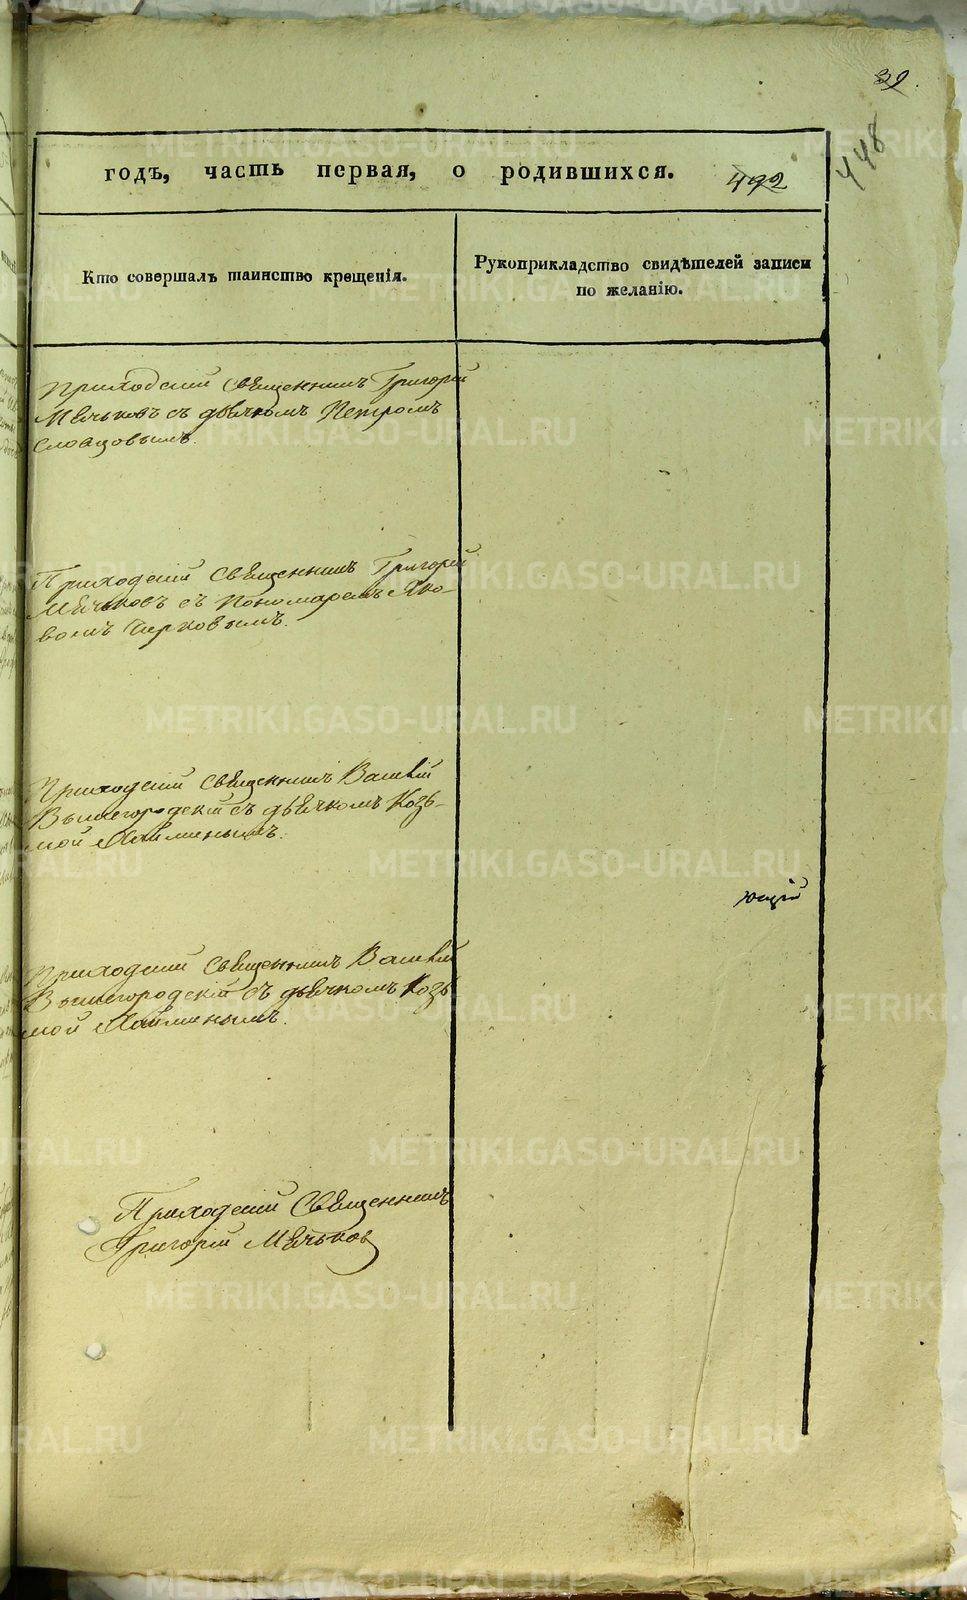 39.
448
годъ, часть первая, о родившихся. 492
Кто совершалъ таинство крещенія.
Рукоприкладство свидѣтелей записи
по желанію.
Приходскій Священникъ Григорій
Мѣньковъ съ дьячкомъ Петромъ
Словцовымъ.
Приходскій Священникъ Григорій
Мѣньковъ съ Пономаремъ Яко-
вомъ
Приходскій Священникъ Василій
Вышегородскій съ дьячкомъ Козь-
мой
ющій
Приходскій Священникъ Василій
Вышегородскій съ дьячкомъ Козь
мой
Приходскій Священникъ
Григорій Мѣньковъ
METRIKI.GASO-URAL.RU